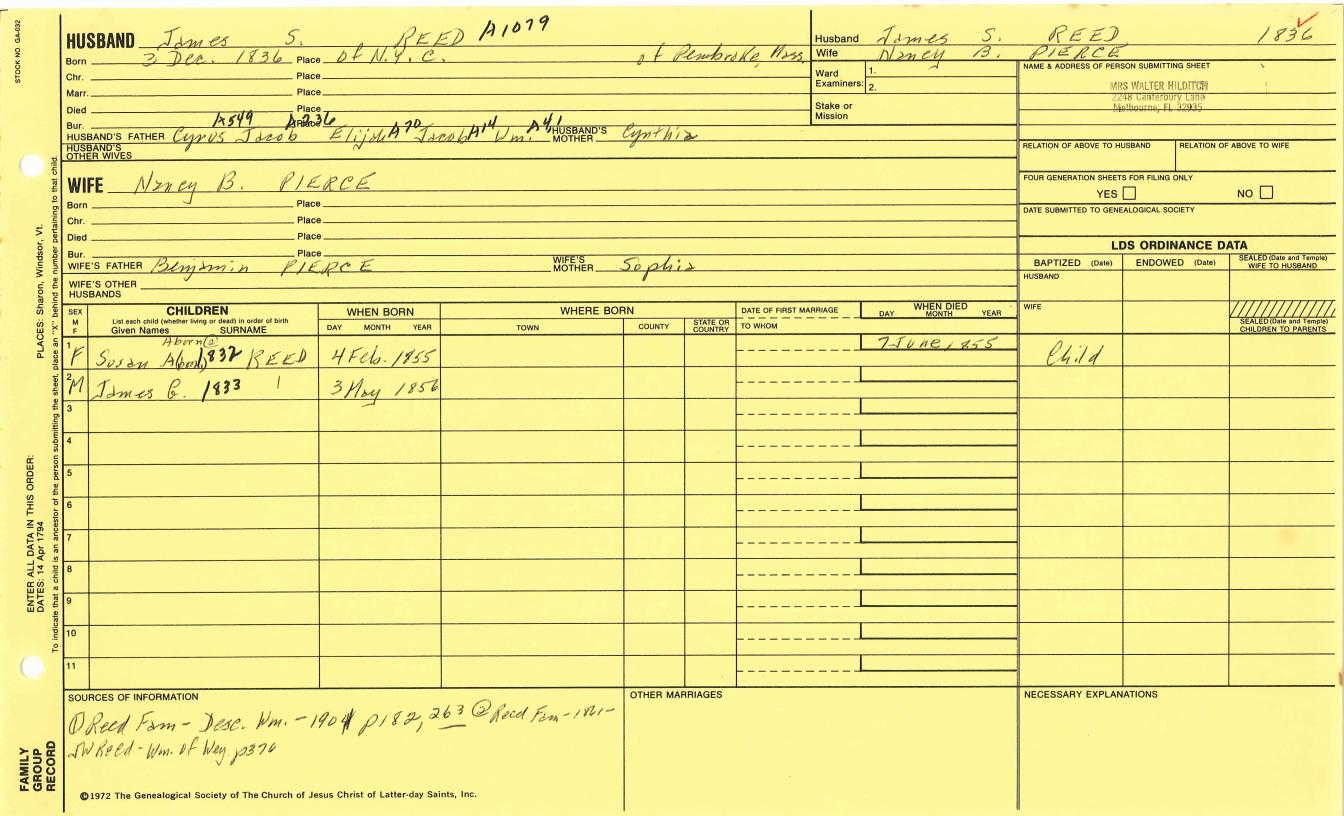 STOCK NO. GA-032
PLACES: Sharon, Windsor, Vt.
ENTER ALL DATA IN THIS ORDER:
DATES: 14 Apr 1794
To indicate that a child is an ancestor of the person submitting the sheet, place an "X" behind the number pertaining to that child.
FAMILY GROUP RECORD
HUSBAND James S. REED A1079
Born 3 Dec. 1836 Place of N.Y.C. of Pembroke, Mass.
Chr. Place
Marr. Place
Died Place
Bur. Place
A549 A236 A70 A14 A41
HUSBAND'S FATHER Cyrus Jacob Elijah Jacob Wm. HUSBAND'S MOTHER Cynthia
HUSBAND'S OTHER WIVES
WIFE Nancy B. PIERCE
Born Place
Chr. Place
Died Place
Bur. Place
WIFE'S FATHER Benjamin PIERCE WIFE'S MOTHER Sophia
WIFE'S OTHER HUSBANDS
Husband James S. REED 1836
Wife Nancy B. PIERCE
Ward Examiners: 1.
2.
Stake or Mission
NAME & ADDRESS OF PERSON SUBMITTING SHEET
MRS WALTER HILDITCH
2248 Canterbury Lane
Melbourne, FL 32935
RELATION OF ABOVE TO HUSBAND RELATION OF ABOVE TO WIFE
FOUR GENERATION SHEETS FOR FILING ONLY
YES NO
DATE SUBMITTED TO GENEALOGICAL SOCIETY
LDS ORDINANCE DATA
BAPTIZED (Date) ENDOWED (Date) SEALED (Date and Temple) WIFE TO HUSBAND
HUSBAND
WIFE
SEALED (Date and Temple) CHILDREN TO PARENTS
SEX M F CHILDREN WHEN BORN WHERE BORN DATE OF FIRST MARRIAGE WHEN DIED
List each child (whether living or dead) in order of birth
Given Names SURNAME DAY MONTH YEAR TOWN COUNTY STATE OR COUNTRY TO WHOM DAY MONTH YEAR
Aborn(2)
1 F Susan 1832 REED 4 Feb. 1855 7 June, 1855 Child
2 M James G. 1833 3 May 1856
3
4
5
6
7
8
9
10
11
SOURCES OF INFORMATION
① Reed Fam - Desc. Wm. - 1901 p182, 263 ② Reed Fam - 1861 -
JW Reed - Wm. of Wey p376
OTHER MARRIAGES
NECESSARY EXPLANATIONS
©1972 The Genealogical Society of The Church of Jesus Christ of Latter-day Saints, Inc.